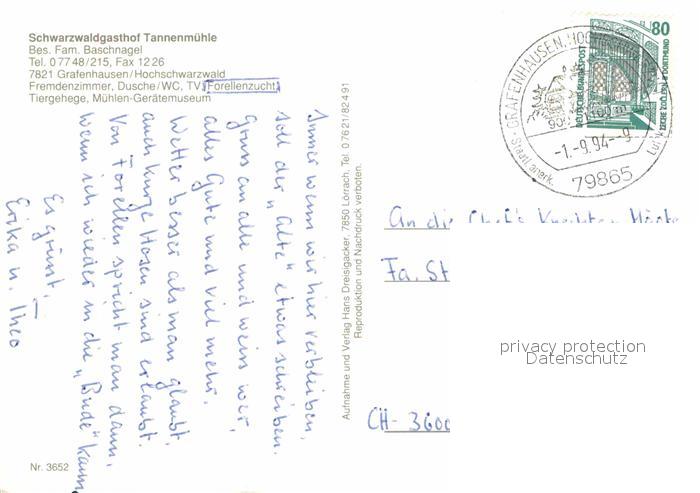 Schwarzwaldgasthof Tannenmühle
Bes. Fam. Baschnagel
Tel. 0 77 48 / 215, Fax 12 26
7821 Grafenhausen / Hochschwarzwald
Fremdenzimmer, Dusche / WC, TV, Forellenzucht,
Tiergehege, Mühlen-Gerätemuseum
Immer wenn wir hier verbleiben,
soll der "Alte" etwas schreiben.
Gruss an alle und weiss wer,
alles Gute und viel mehr.
Wetter besser als man glaubt,
auch kurze Hosen sind erlaubt.
Von Forellen spricht man dann,
wenn ich wieder in die "Bude" kann.
Es grüsst:
Erika u. Theo
Nr. 3652
Aufnahme und Verlag Hans Dreisigacker, 7850 Lörrach, Tel. 0 76 21 / 8 24 91
Reproduktion und Nachdruck verboten.
80
DEUTSCHE BUNDESPOST
ZECHE ZOLLERN II DORTMUND
GRAFENHAUSEN, HOCHSCHWARZWALD
Staatl. anerk.
-1.-9.94--9
79865
An die
Fa. St
CH- 3600
privacy protection
Datenschutz